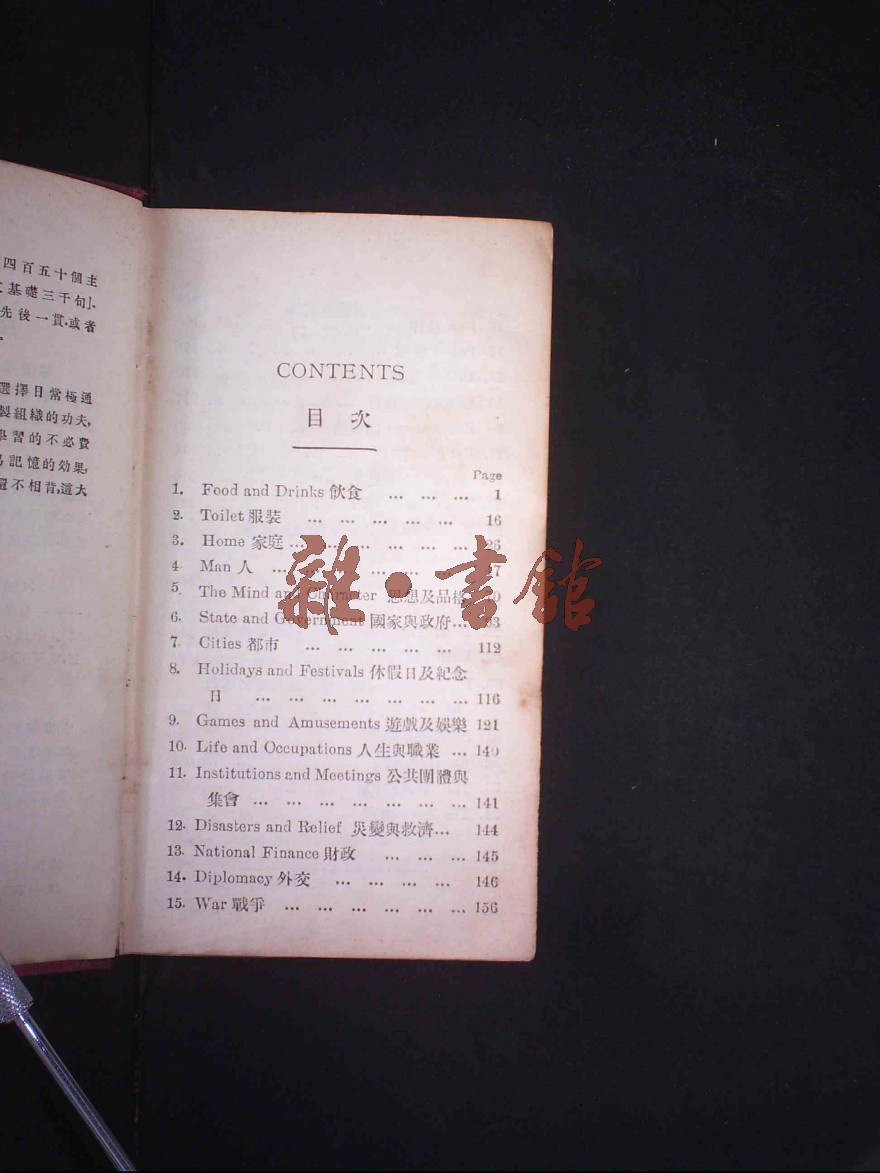 四百五十個主
基礎三千句」.
先後一貫.或者
選擇日常極通
製組織的功夫,
學習的不必費
記憶的效果,
還不相背,這大
CONTENTS
目次
Page
1. Food and Drinks 飲食 ... ... ... 1
2. Toilet 服裝 ... ... ... ... ... 16
3. Home 家庭 ... ... ... ... ... ... 26
4 Man 人 ... ... ... ... ... 7
5. The Mind and Character 思想及品格 0
6. State and Government 國家與政府... 3
7 Cities 都市 ... ... ... ... ... 112
8. Holidays and Festivals 休假日及紀念
日 ... ... ... ... ... ... ... 116
9. Games and Amusements 遊戲及娛樂 121
10. Life and Occupations 人生與職業 ... 140
11. Institutions and Meetings 公共團體與
集會 ... ... ... ... ... ... ... 141
12. Disasters and Relief 災變與救濟... 144
13. National Finance 財政 ... ... ... 145
14. Diplomacy 外交 ... ... ... ... 146
15. War 戰爭 ... ... ... ... ... ... 156
雜·書館